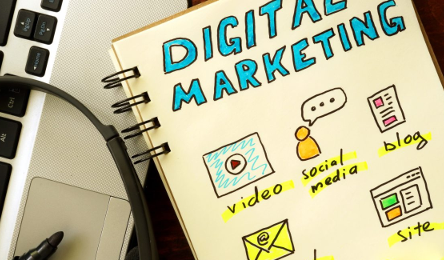 DIGITAL
MARKETING
video
social
media
blog
@
site
Ctrl
Alt